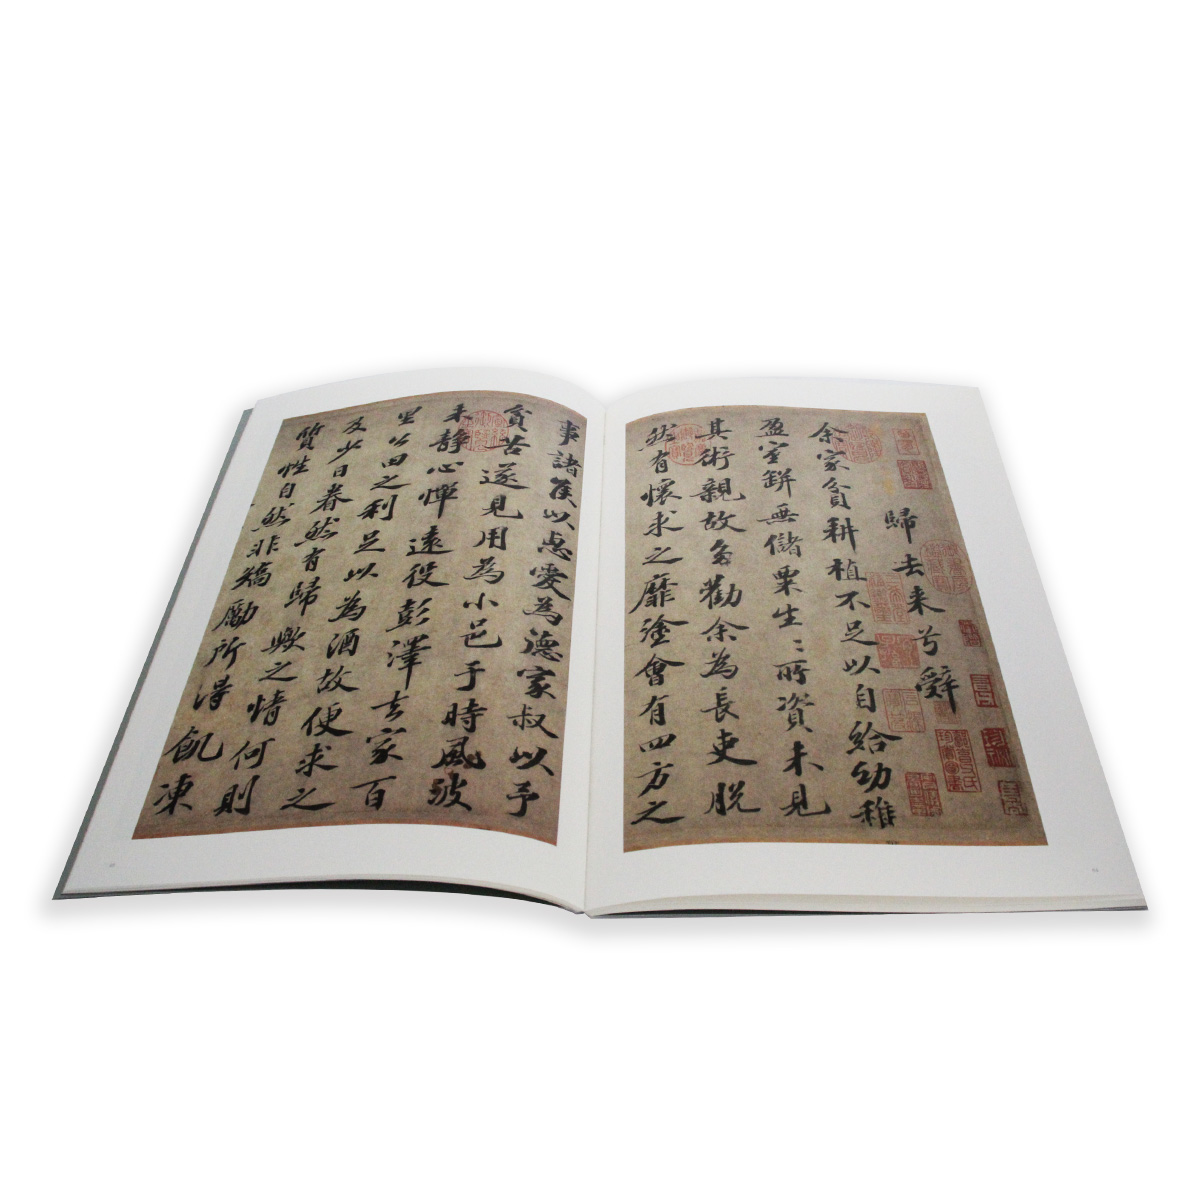 歸去来兮辭
余家貧耕植不足以自給幼稚
盈室缾無儲粟生〻所資未見
其術親故多勸余為長吏脫
然有懷求之靡塗會有四方之
事諸侯以惠愛為德家叔以予
貧苦遂見用為小邑于時風波
未靜心憚遠役彭澤去家百
里公田之利足以為酒故便求之
及少日眷然有歸歟之情何則
質性自然非矯勵所得飢凍